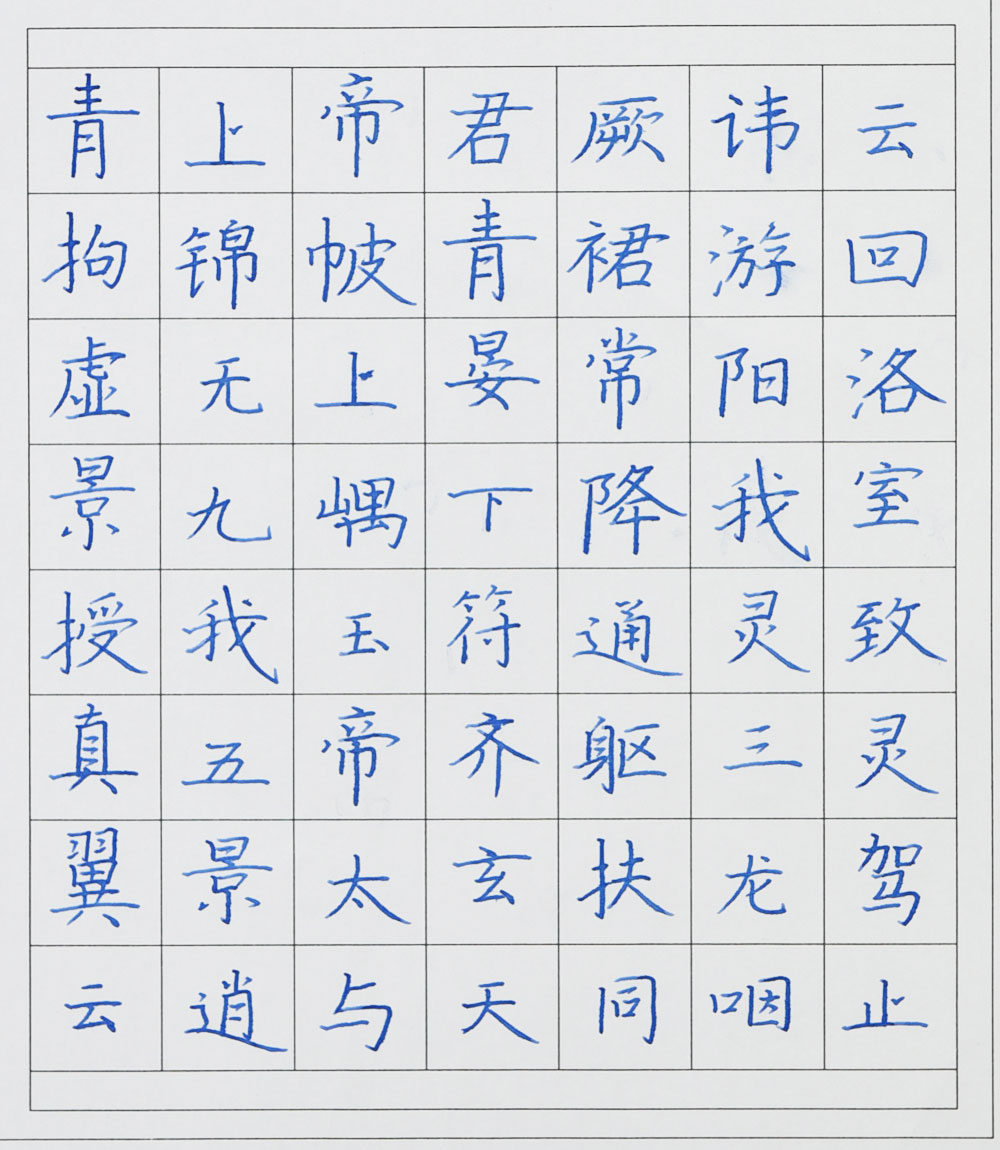 青上帝君厥讳云
拘锦帔青裙游回
虚无上晏常阳洛
景九嵎下降我室
授我玉符通灵致
真五帝齐躯三灵
翼景太玄扶龙驾
云逍与天同咽止